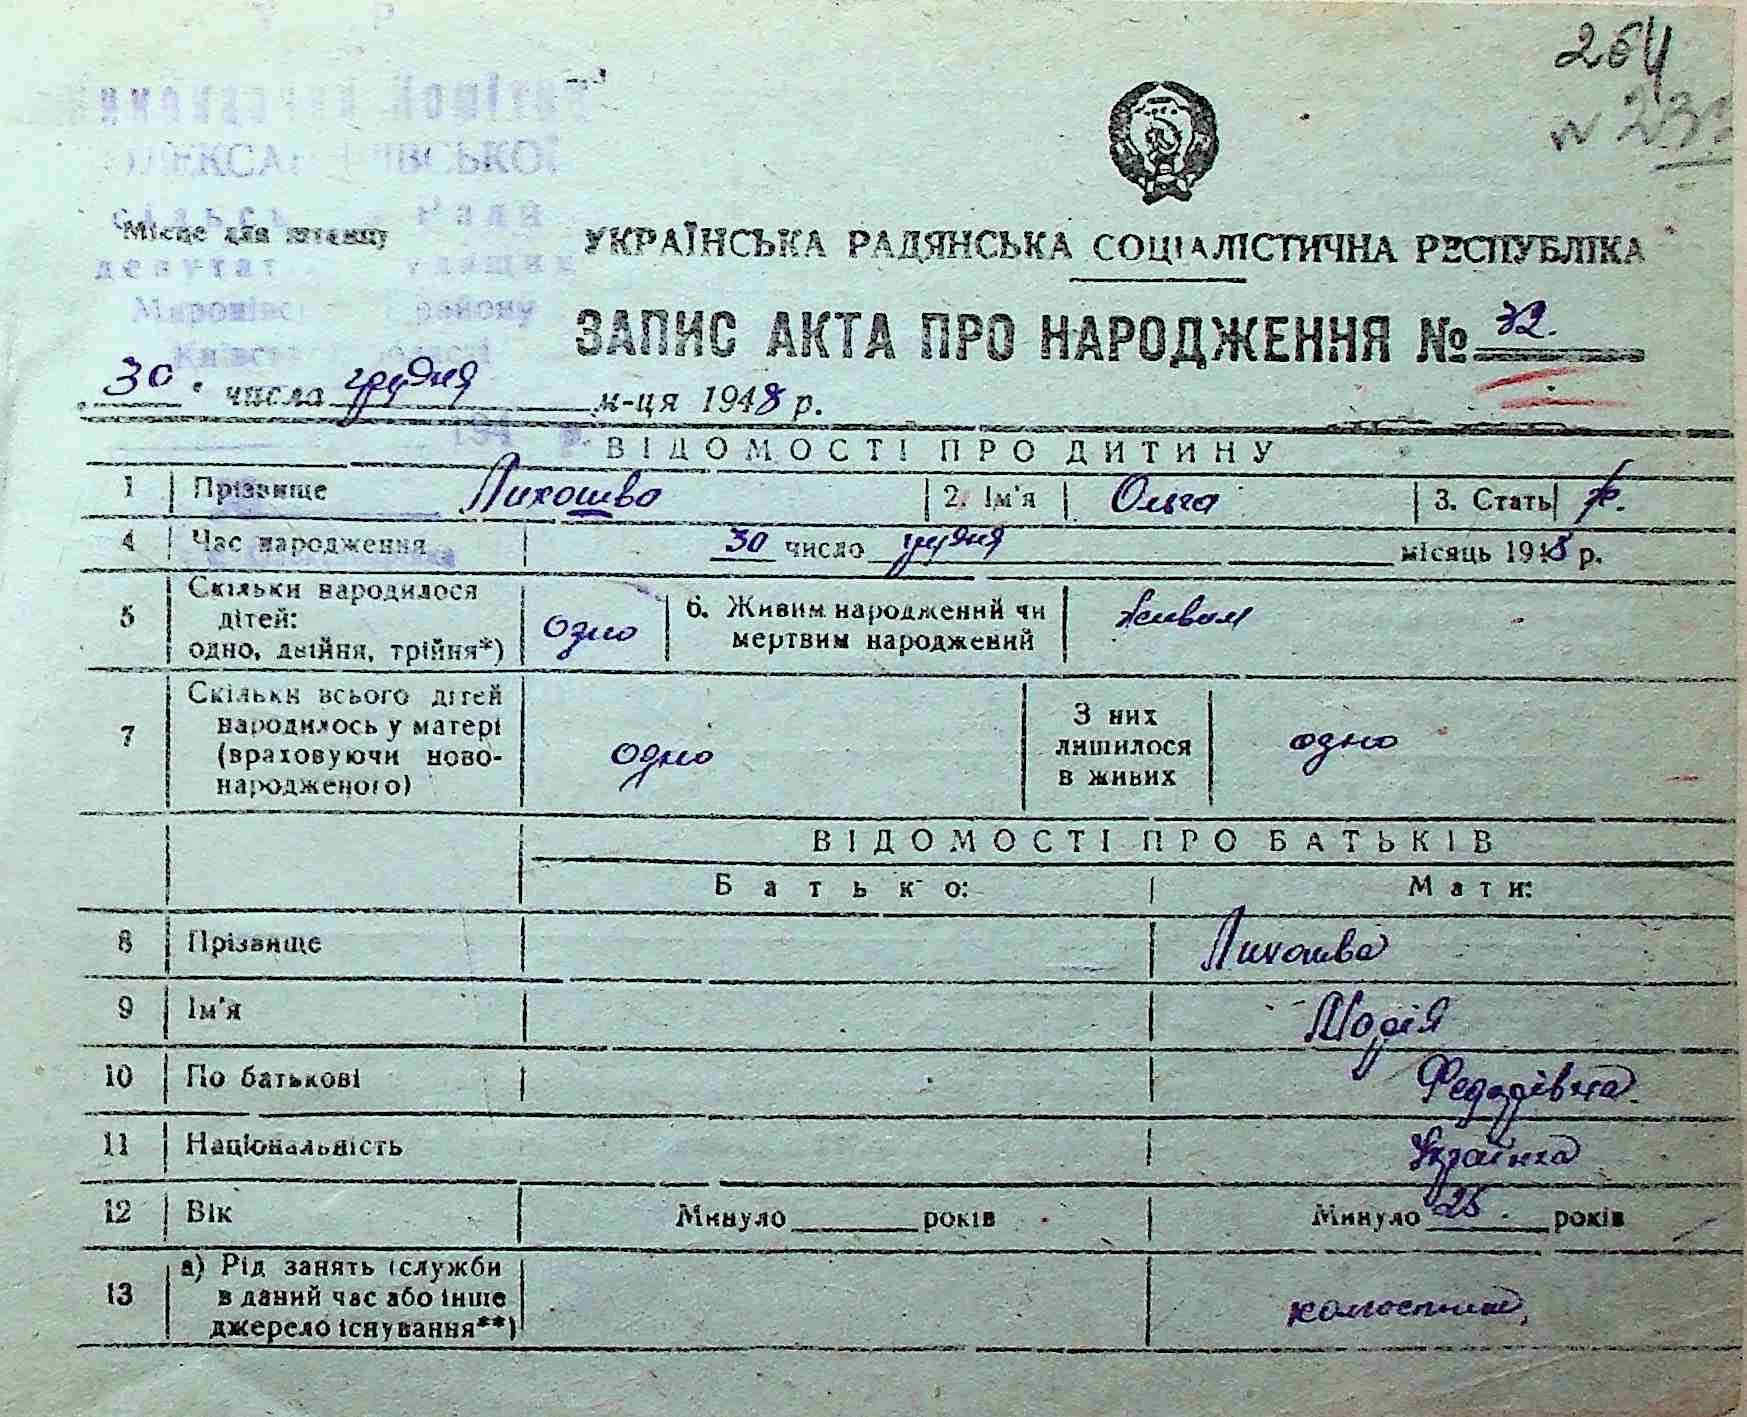 264
N 23
Виконавчий Комітет
ОЛЕКСАНДРІВСЬКОЇ
сільської Ради
депутатів трудящих
Миронівського району
Київської області
194 р.
Місце для штампу
УКРАЇНСЬКА РАДЯНСЬКА СОЦІАЛІСТИЧНА РЕСПУБЛІКА
ЗАПИС АКТА ПРО НАРОДЖЕННЯ № 32.
30 числа грудня м-ця 1948 р.
ВІДОМОСТІ ПРО ДИТИНУ
1 Прізвище Лихошва 2. Ім'я Ольга 3. Стать ж.
4 Час народження 30 число грудня місяць 1948 р.
5 Скільки народилося дітей: одно, двійня, трійня*) одно 6. Живим народжений чи мертвим народжений живим
7 Скільки всього дітей народилось у матері (враховуючи ново-народженого) одно З них лишилося в живих одно
ВІДОМОСТІ ПРО БАТЬКІВ
Батько: Мати:
8 Прізвище Лихошва
9 Ім'я Марія
10 По батькові Федорівна.
11 Національність Українка
12 Вік Минуло років Минуло 25 років
13 а) Рід занять (служби в даний час або інше джерело існування**)